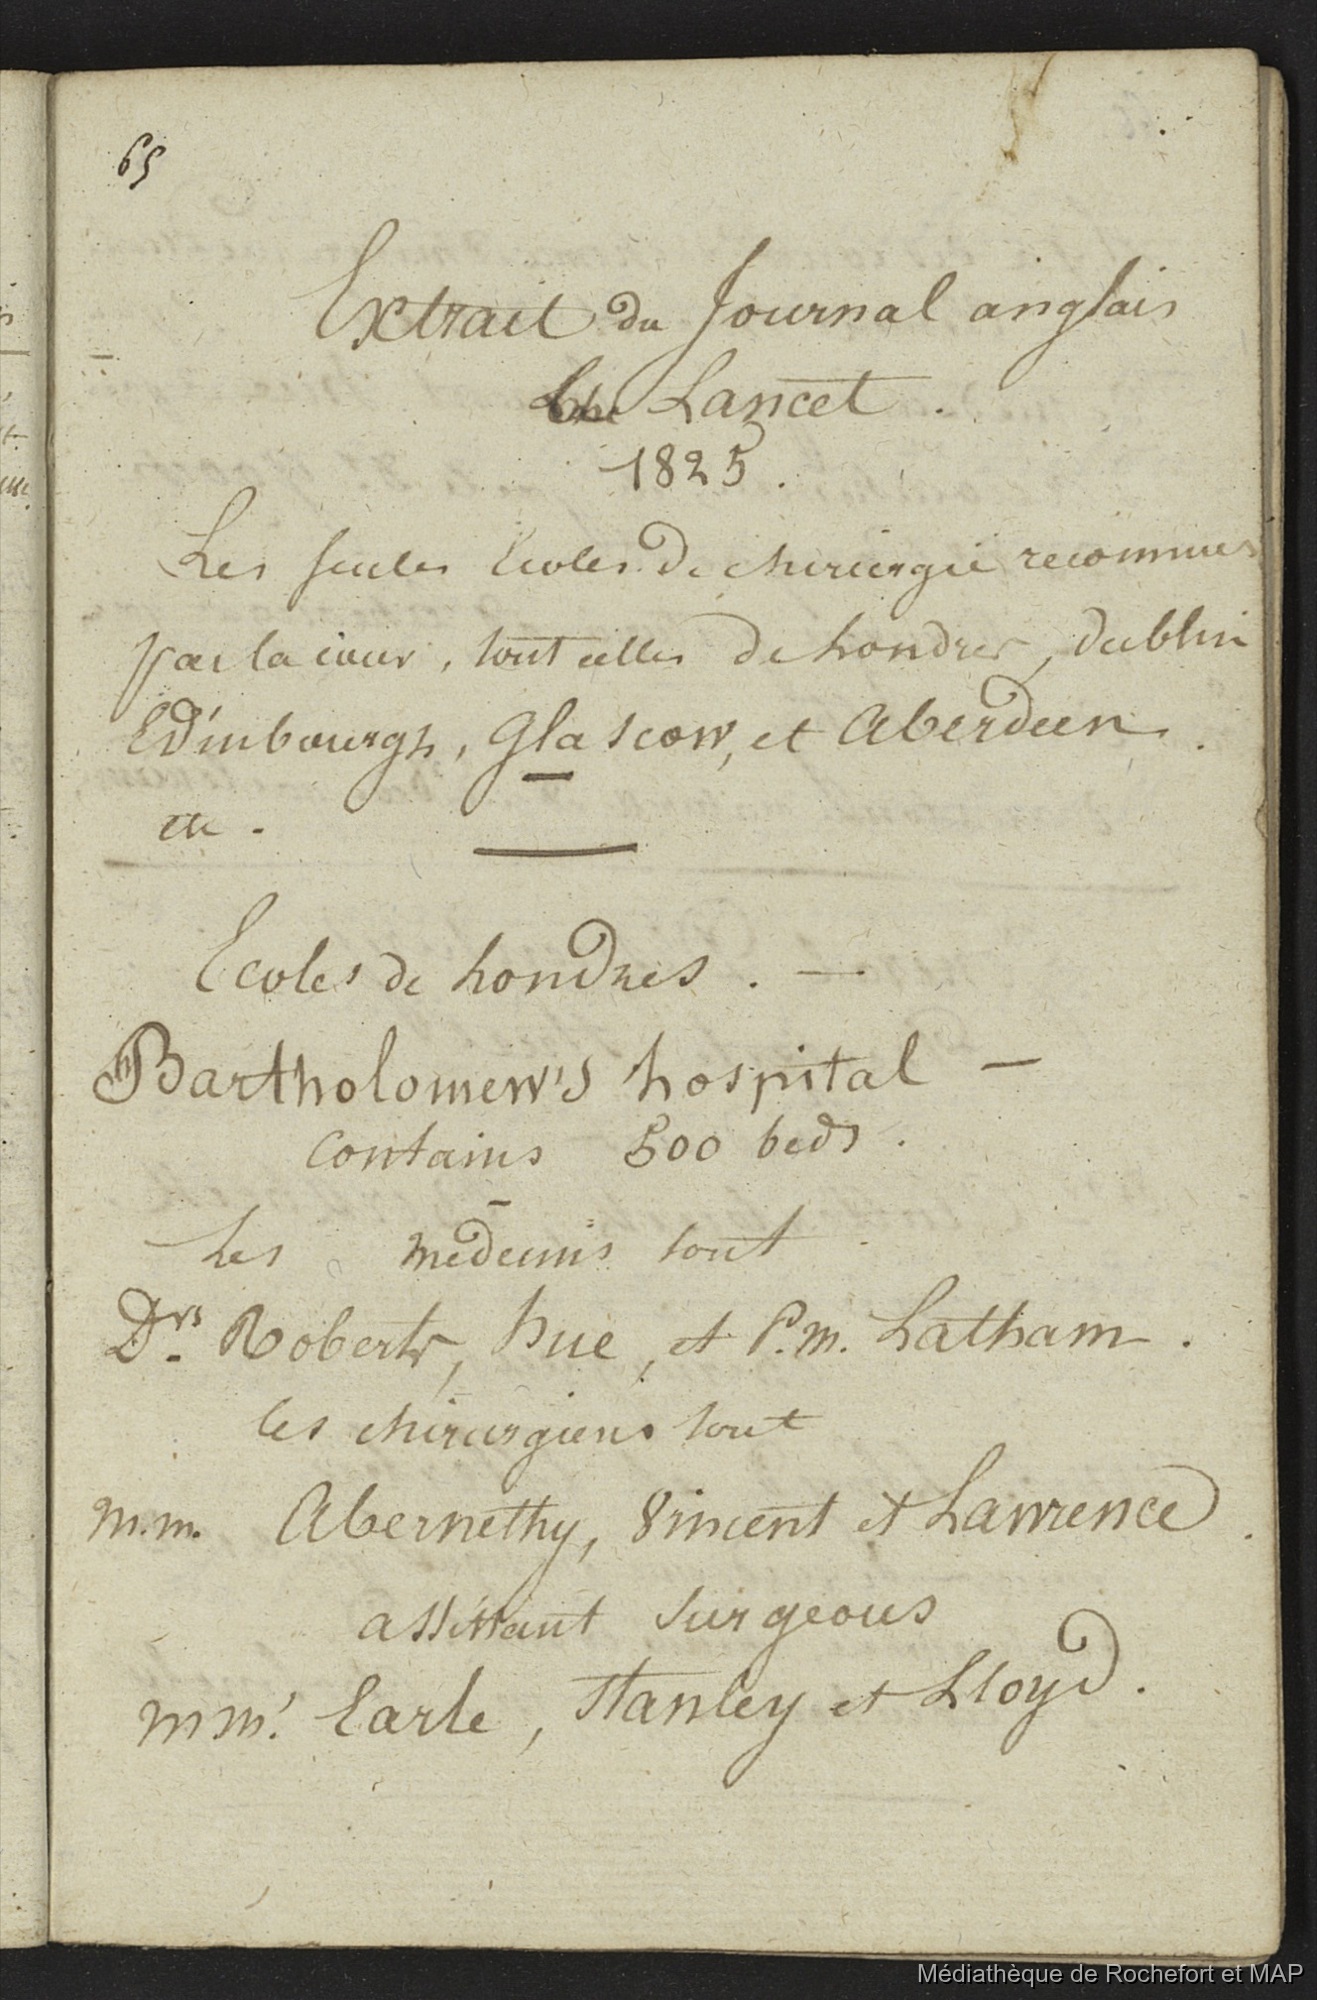 65
Extrait du Journal anglais
the Lancet.
1825.
Les seules Ecoles de chirurgie reconnues
par la cour, sont celles de Londres, dublin
Edinbourgh, Glascow, et Aberdeen.
etc.
Ecoles de Londres. —
Bartholomew's hospital —
contains 500 beds.
Les médecins sont
Drs. Roberts, hue, et P.m. Latham.
les chirurgiens sont
m.m. Abernethy, Vincent et Lawrence.
assistant surgeons
mm. Earle, Stanley et Lloyd.
Médiathèque de Rochefort et MAP